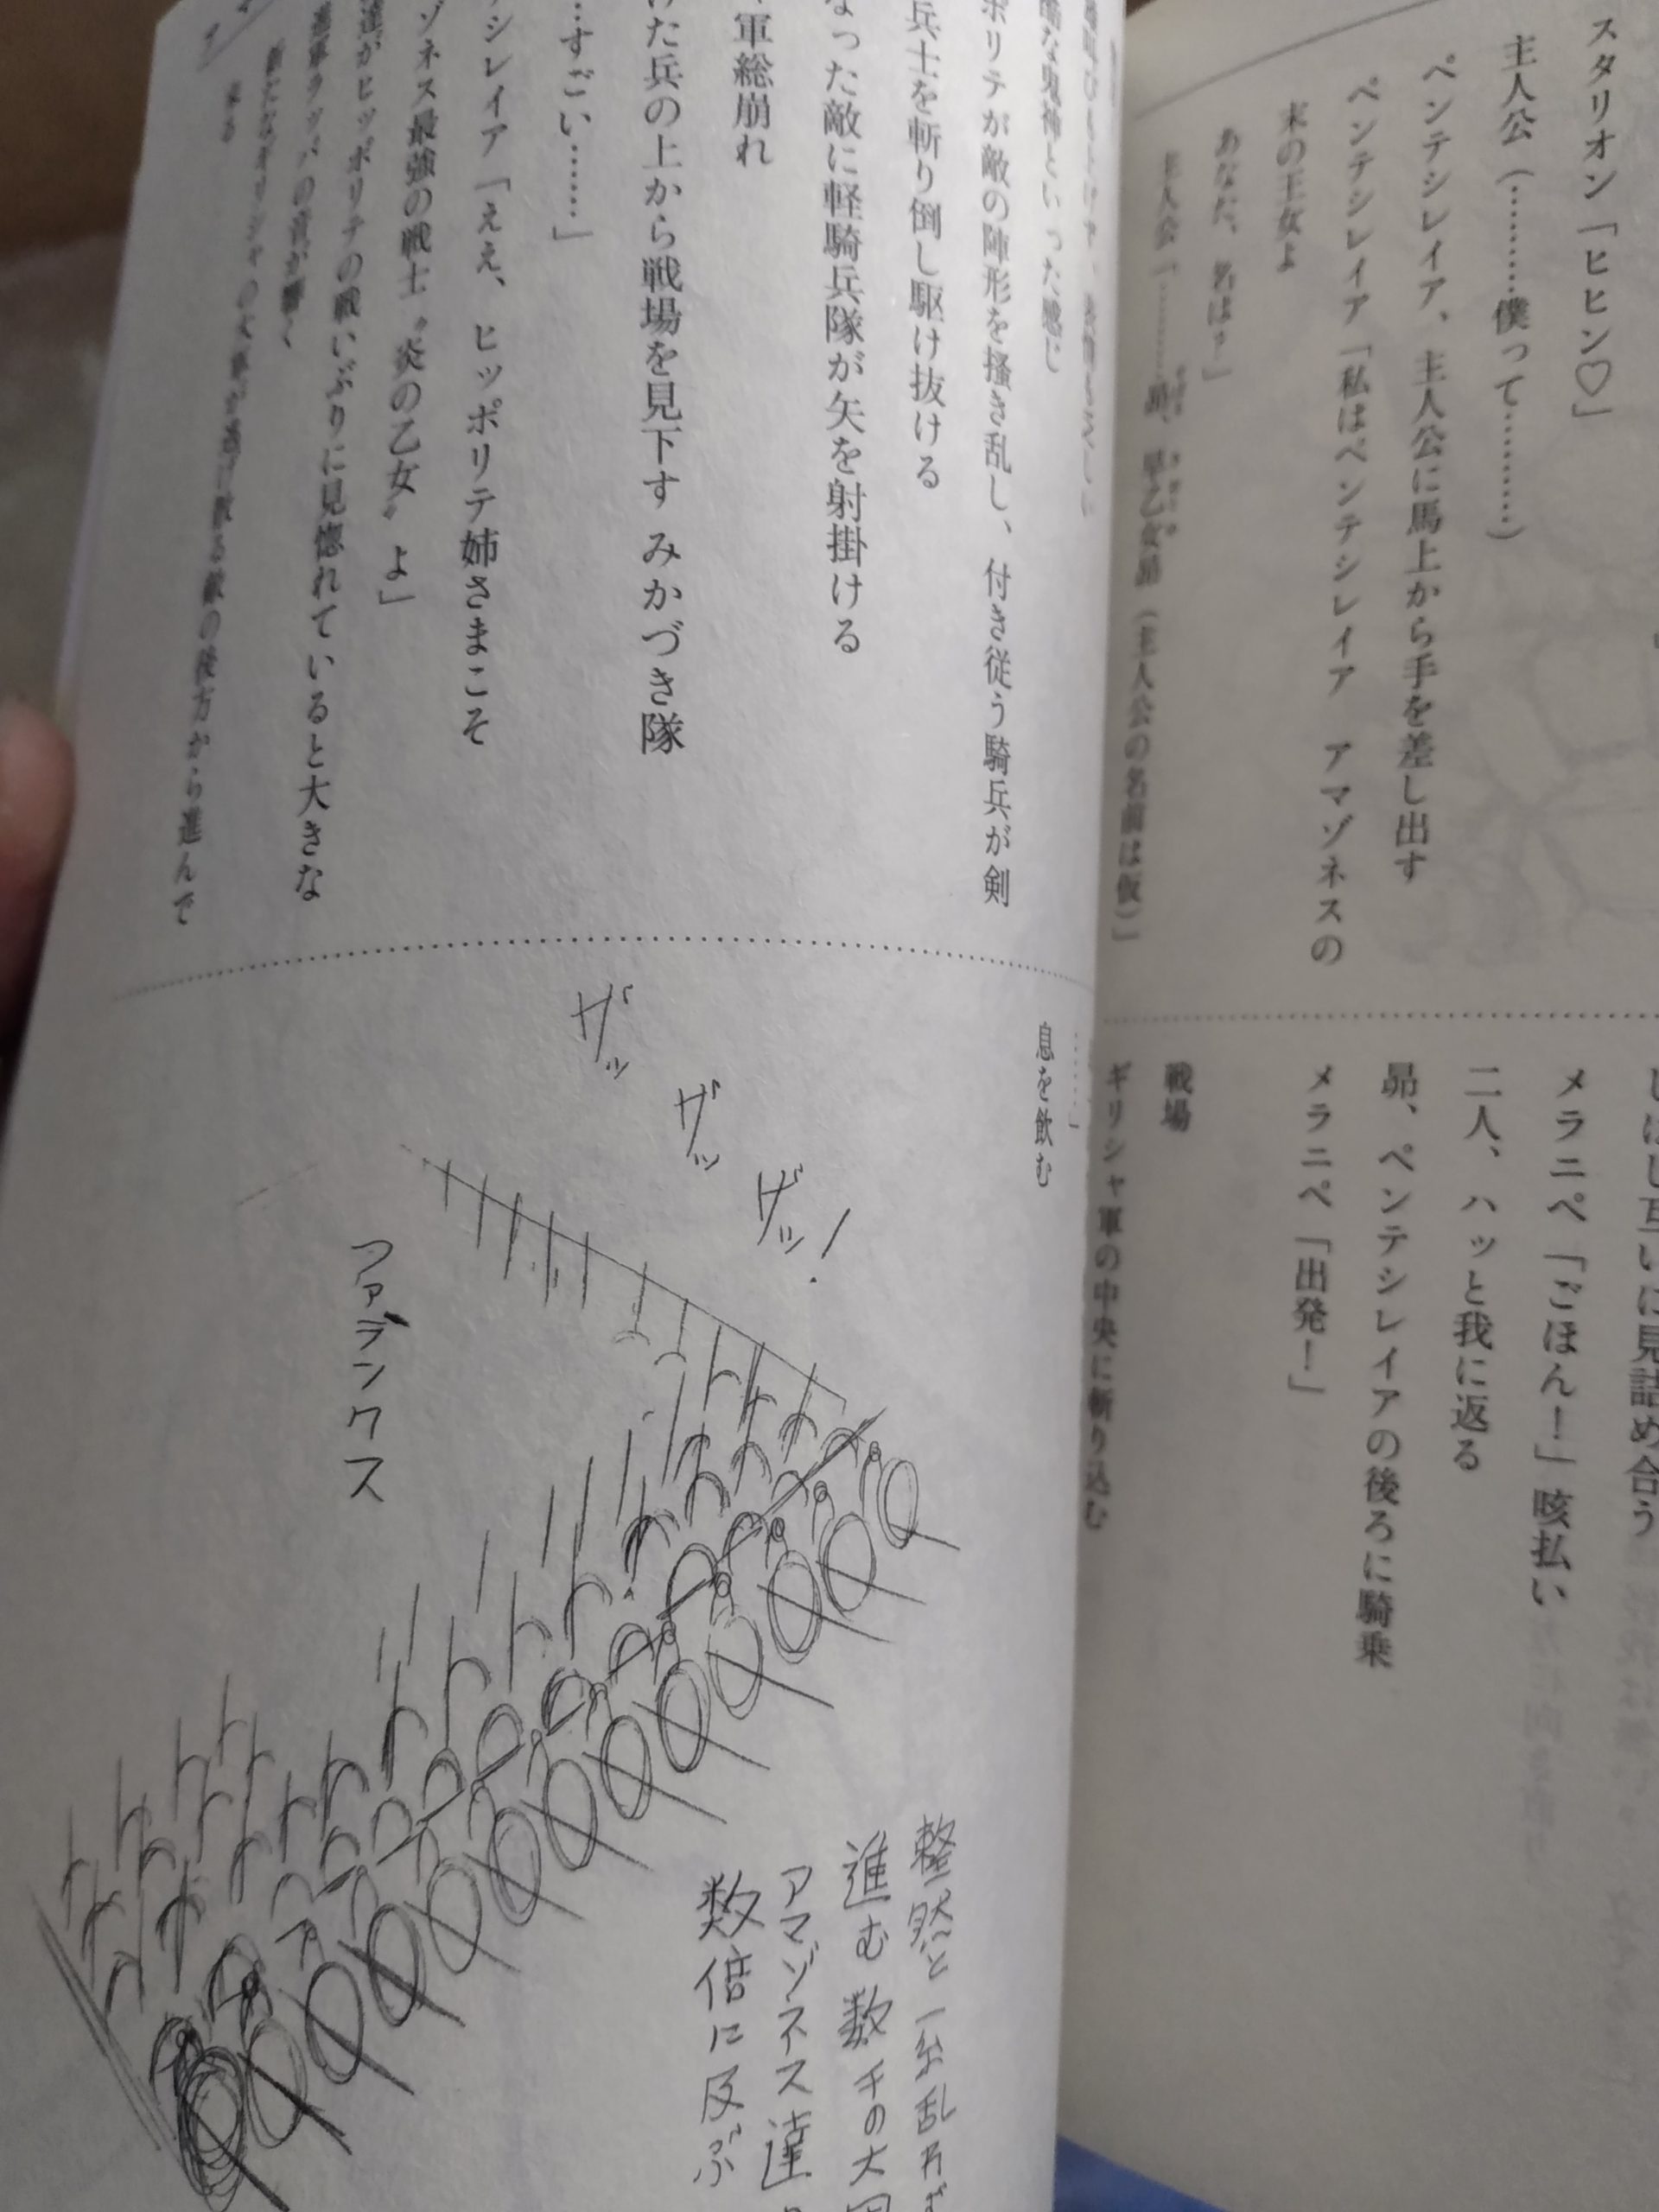 スタリオン「ヒヒン♡」
主人公（…………僕って…………）
ペンテシレイア、主人公に馬上から手を差し出す
ペンテシレイア「私はペンテシレイア　アマゾネスの
末の王女よ
あなた、名は？」
主人公「…………昴、早乙女昴（主人公の名前は仮）」
しばし互いに見詰め合う
メラニペ「ごほん！」咳払い
二人、ハッと我に返る
昴、ペンテシレイアの後ろに騎乗
メラニペ「出発！」
戦場
ギリシャ軍の中央に斬り込む
な鬼神といった感じ
ポリテが敵の陣形を掻き乱し、付き従う騎兵が剣
兵士を斬り倒し駆け抜ける
なった敵に軽騎兵隊が矢を射掛ける
軍総崩れ
けた兵の上から戦場を見下す みかづき隊
…すごい……」
シレイア「ええ、ヒッポリテ姉さまこそ
ゾネス最強の戦士〝炎の乙女〟よ」
達がヒッポリテの戦いぶりに見惚れていると大きな
進軍ラッパの音が響く
新たなギリシャの大軍が逃げ散る敵の後方から進んで
来る
……」
息を飲む
ザッ
ザッ
ザッ！
ファランクス
整然と一糸乱れず
進む数千の大
アマゾネス達
数倍に及ぶ